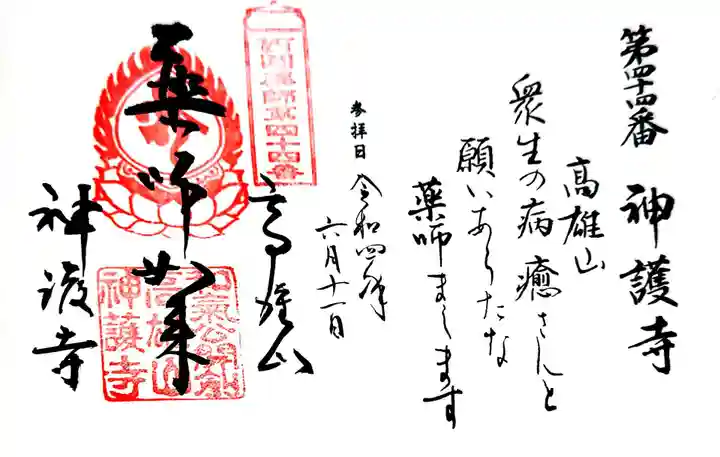 第四十四番 神護寺
高雄山
衆生の病癒さんと
願いあらたな
薬師まします
参拝日 令和四年
六月十一日
西国薬師第四十四番
高雄山
薬師如来
神護寺
和氣公開創
高雄山
神護寺